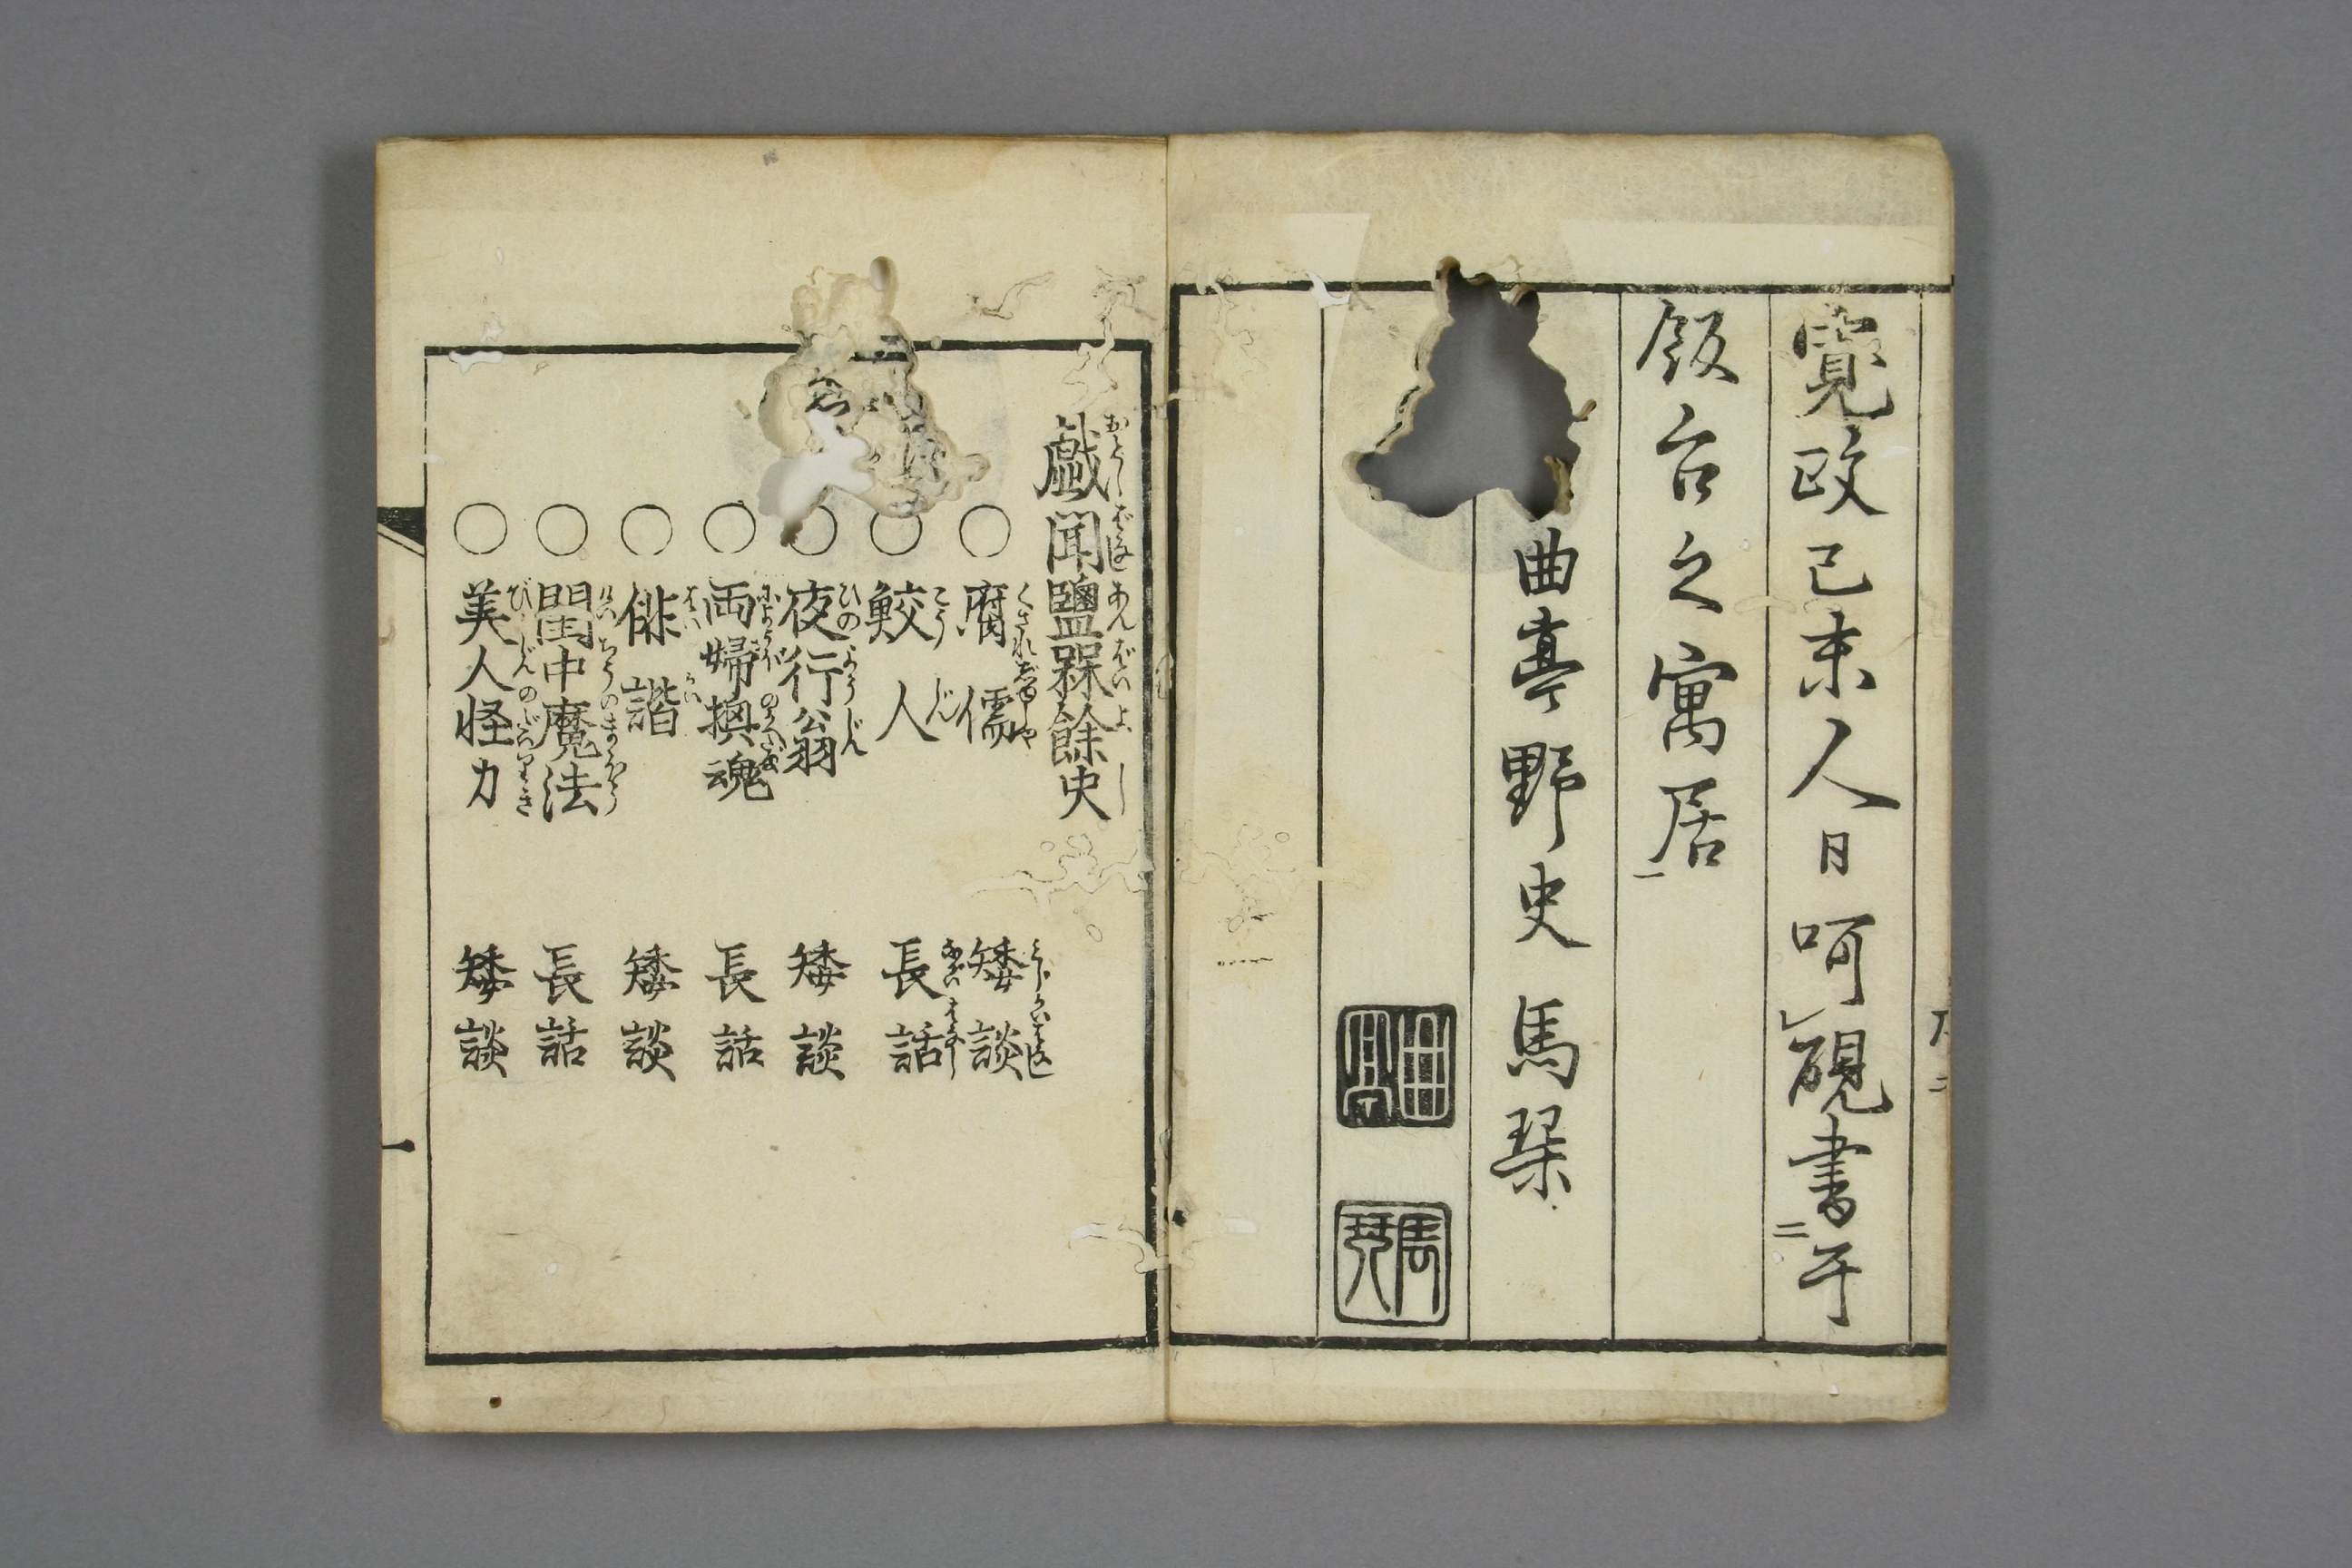 寛政己未人日呵硯書于
飯台之寓居
曲亭野史馬琹
曲亭
馬琴
戯聞鹽梅餘史
○腐儒 矮談
○鮫人 長話
○夜行翁 矮談
○両婦換魂 長話
○俳諧 矮談
○閨中魔法 長話
○美人怪力 矮談
一